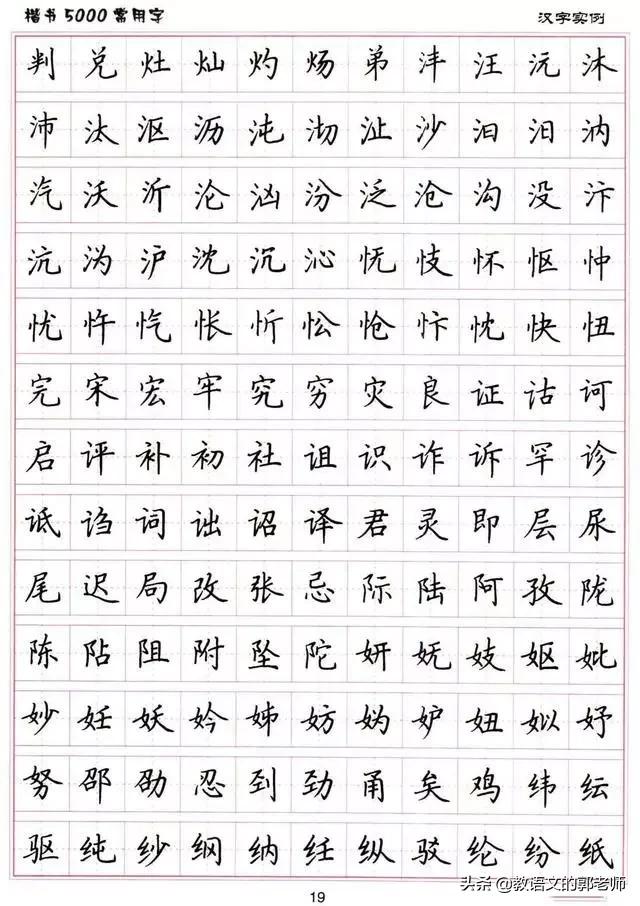 楷书5000常用字 汉字实例
判兑灶灿灼炀弟沣汪沅沐
沛汰沤沥沌沏沚沙汩汨汭
汽沃沂沦汹汾泛沧沟没汴
沆沩沪沈沉沁怃忮怀怄忡
忧忤忾怅忻忪怆忭忱快忸
完宋宏牢究穷灾良证诂诃
启评补初社诅识诈诉罕诊
诋诌词诎诏译君灵即层尿
尾迟局改张忌际陆阿孜陇
陈阽阻附坠陀妍妩妓妪妣
妙妊妖妗姊妨妫妒妞姒妤
努邵劭忍到劲甬矣鸡纬纭
驱纯纱纲纳纴纵驳纶纷纸
头条@教语文的郭老师
19